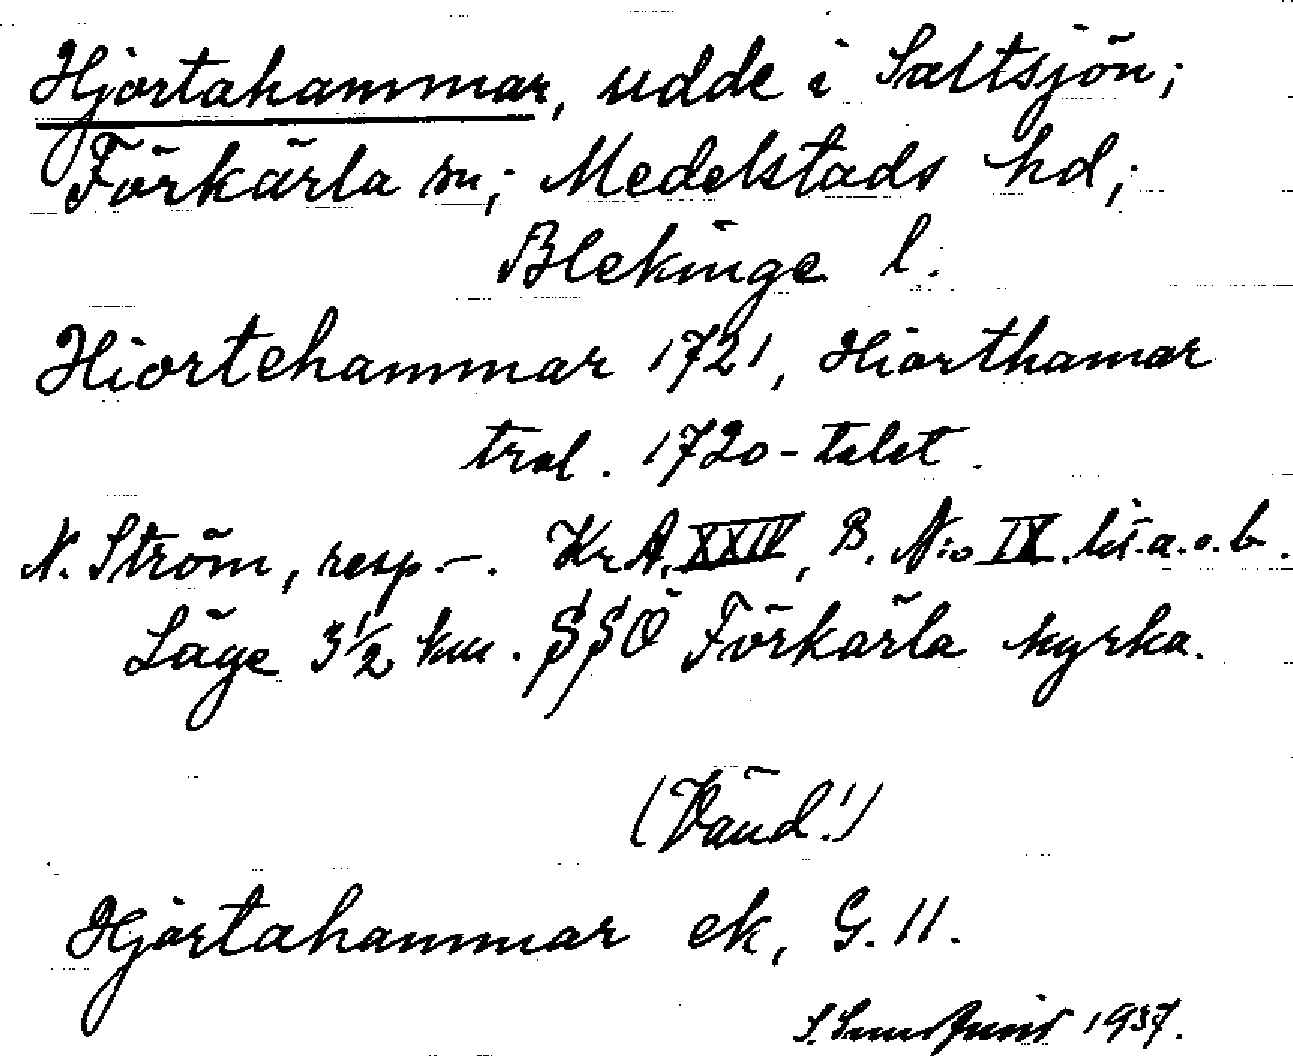 Hjortahammar, udde i Saltsjön;
Förkärla sn; Medelstads hd;
Blekinge l.
Hiortehammar 1721, Hiorthamar
tral. 1720-talet.
N. Ström, resp.–. Kr. A. XXIV, B. N:o IX. lit. a. o. b.
Läge 3½ km. SSÖ Förkärla kyrka.
(Vänd!)
Hjortahammar ek, G. 11.
1937.